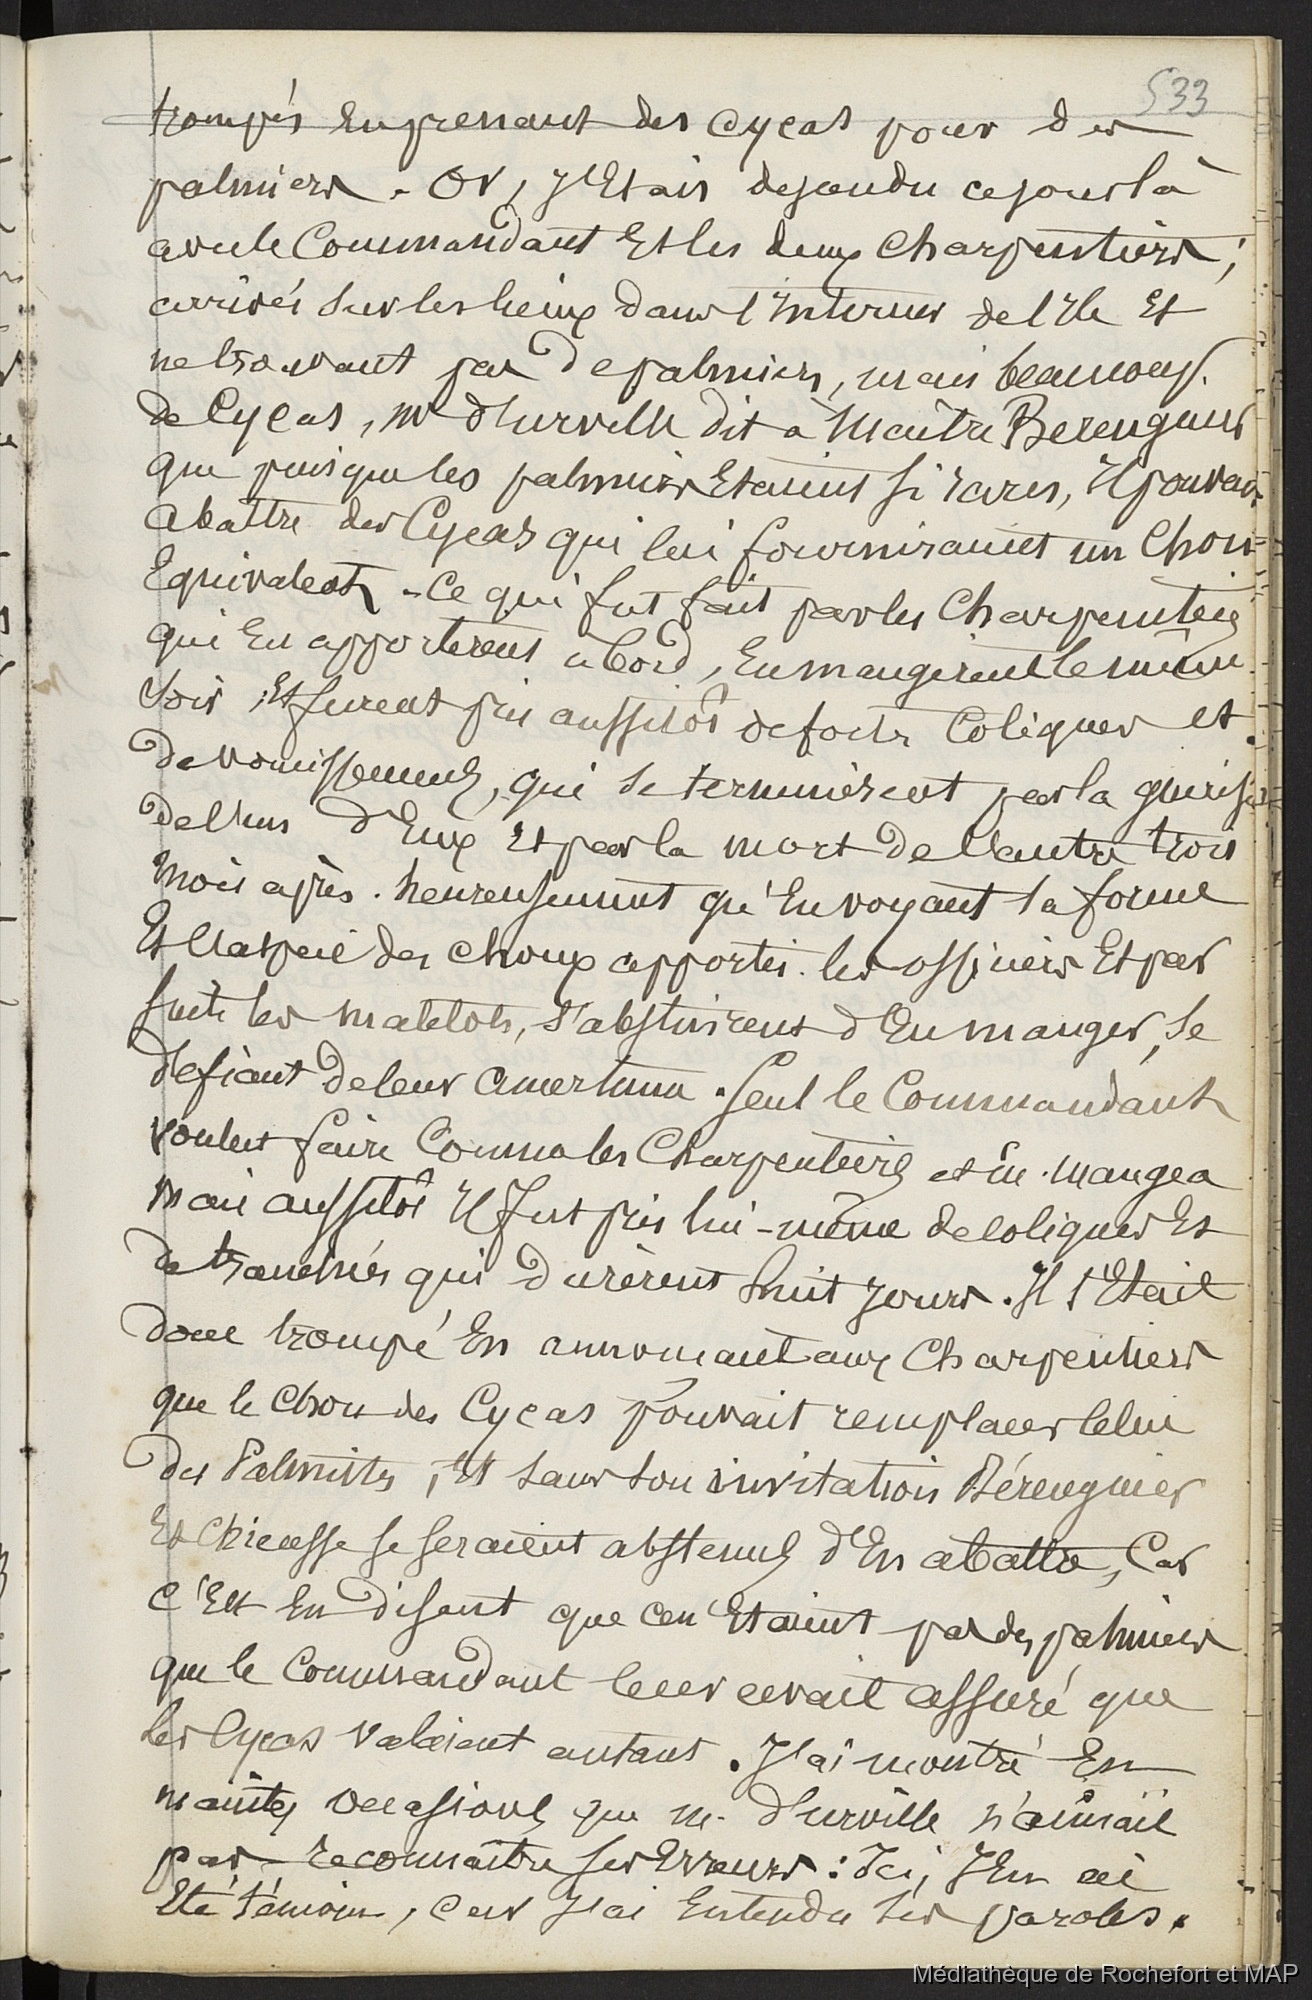 533
trompés en prenant des Cycas pour des
palmiers. Or, j'Etais descendu ce jour là
avec le Commandant Et les deux Charpentiers;
arrivés sur les lieux dans l'intérieur de l'Ile Et
ne trouvant pas de palmiers, mais beaucoup
de Cycas, Mr d'Urville dit à Maître Berenguier
que puisque les palmiers Etaient si rares, Il pouvait
abattre des Cycas qui lui fourniraient un Chou
Equivalent. Ce qui fut fait par les Charpentiers
qui En apportèrent à bord, En mangèrent le même
soir, Et furent pris aussitôt de fortes Coliques et
de vomissements, qui se terminèrent par la guérison
de l'un d'Eux Et par la mort de l'autre trois
mois après. heureusement qu'En voyant la forme
Et l'aspect des choux apportés. les officiers Et par
suite les matelots, s'abstinrent d'En manger, se
défiant de leur amertume. Seul le Commandant
voulut faire Comme les Charpentiers et En mangea
mais aussitôt Il fut pris lui-même de coliques Et
de tranchées qui durèrent huit jours. Il s'Etait
donc trompé En annonçant aux Charpentiers
que le Chou des Cycas pouvait remplacer Celui
des Palmistes, Et sans son invitation Bérenguier
Et Chieusse se seraient abstenus d'En abattre, Car
c'Est En disant que ce n'Etaient pas des palmiers
que le Commandant leur avait assuré que
les Cycas valaient autant. J'ai montré En
maintes occasions que m. d'Urville n'aimait
pas reconnaître ses Erreurs: Ici, j'En ai
Eté témoin, car j'ai Entendu ses paroles.
Médiathèque de Rochefort et MAP